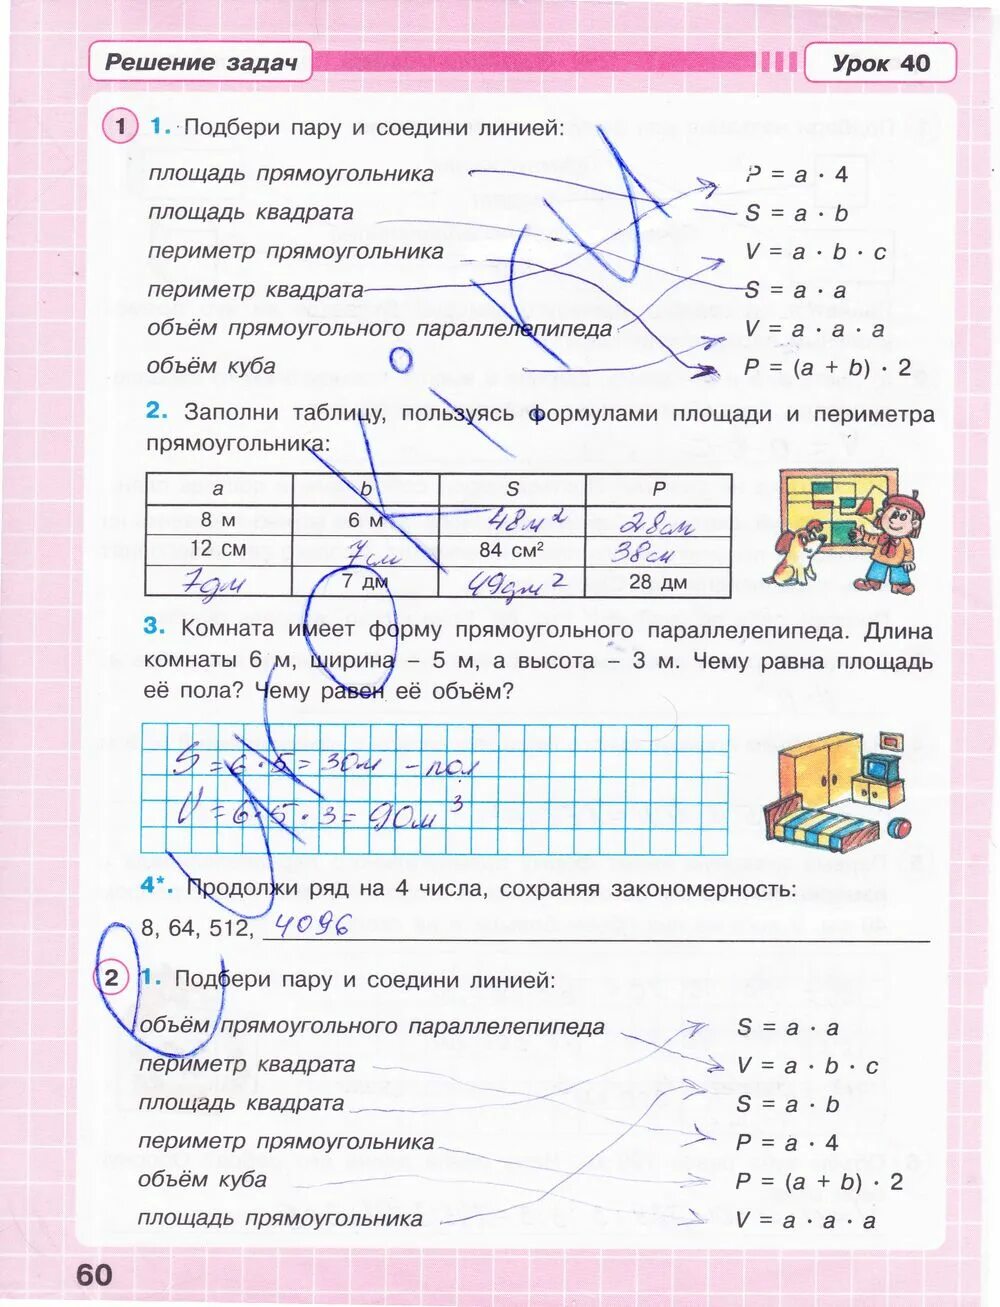 Решение задач
Урок 40
1 1. Подбери пару и соедини линией:
площадь прямоугольника P = a · 4
площадь квадрата S = a · b
периметр прямоугольника V = a · b · c
периметр квадрата S = a · a
объём прямоугольного параллелепипеда V = a · a · a
объём куба P = (a + b) · 2
2. Заполни таблицу, пользуясь формулами площади и периметра
прямоугольника:
a b S P
8 м 6 м 48м² 28см
12 см 7см 84 см² 38см
7дм 7 дм 49дм² 28 дм
3. Комната имеет форму прямоугольного параллелепипеда. Длина
комнаты 6 м, ширина – 5 м, а высота – 3 м. Чему равна площадь
её пола? Чему равен её объём?
S = 6 · 5 = 30м – пол
V = 6 · 5 · 3 = 90м³
4*. Продолжи ряд на 4 числа, сохраняя закономерность:
8, 64, 512, 4096
2 1. Подбери пару и соедини линией:
объём прямоугольного параллелепипеда S = a · a
периметр квадрата V = a · b · c
площадь квадрата S = a · b
периметр прямоугольника P = a · 4
объём куба P = (a + b) · 2
площадь прямоугольника V = a · a · a
60